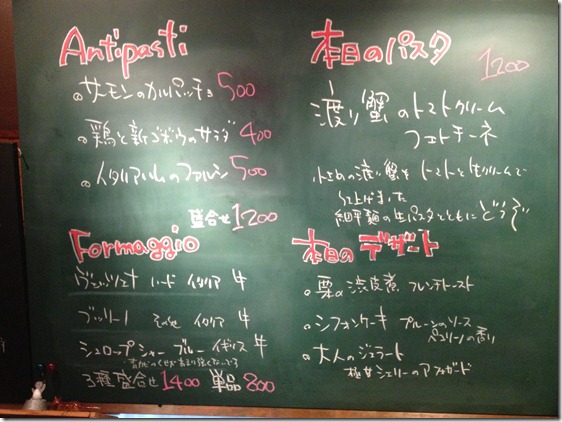 Antipasti
サーモンのカルパッチョ 500
鶏と新ゴボウのサラダ 400
イタリアハムのファルシ 500
盛合せ 1200
Formaggio
ハード イタリア 牛
イタリア 牛
シュロップシャー ブルー イギリス 牛
3種盛合せ 1400 単品 800
本日のパスタ
1200
渡り蟹のトマトクリーム
フェトチーネ
小さめの渡り蟹を トマトと生クリームで
仕上げました
細平麺の生パスタとともにどうぞ
本日の デザート
栗の渋皮煮 フレンチトースト
シフォンケーキ プルーンのソース
の香り
大人のジェラート
極甘シェリーのアフォガード